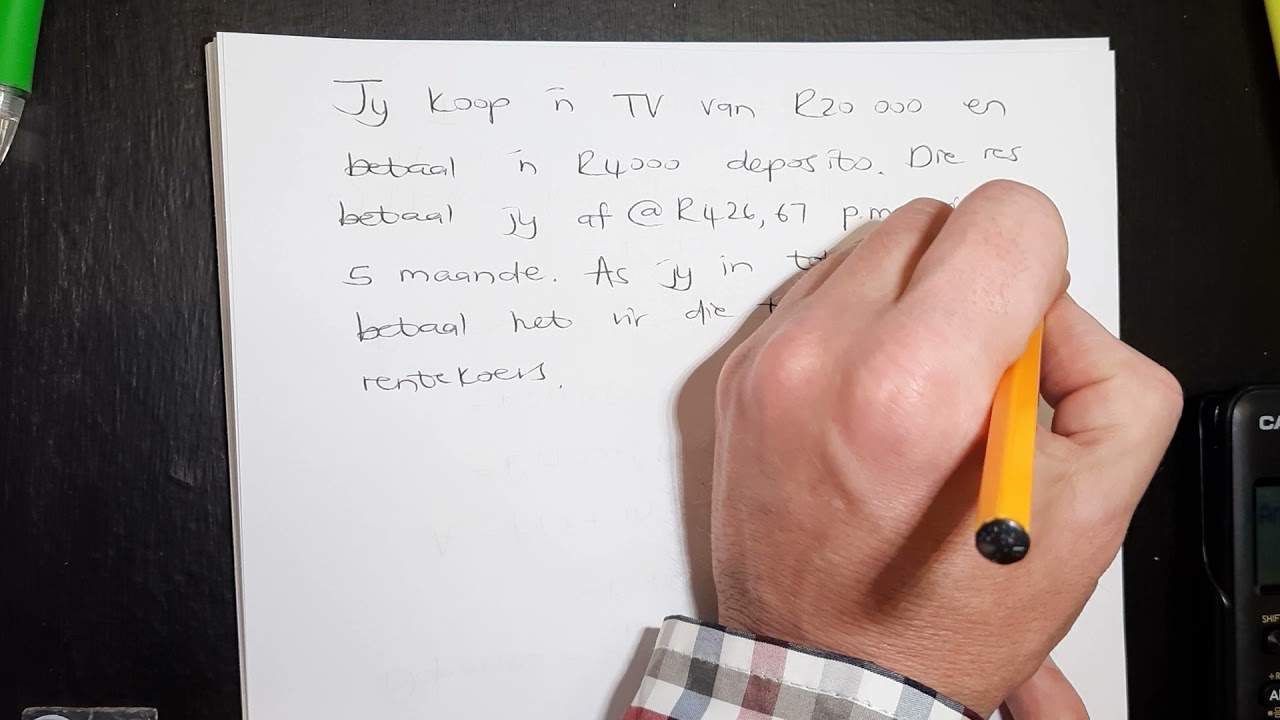 Jy koop 'n TV van R20 000 en
betaal 'n R4000 deposito. Die res
betaal jy af @ R426,67 p.m
5 maande. As jy in
betaal het vir die
rentekoers.
CA
SHIF